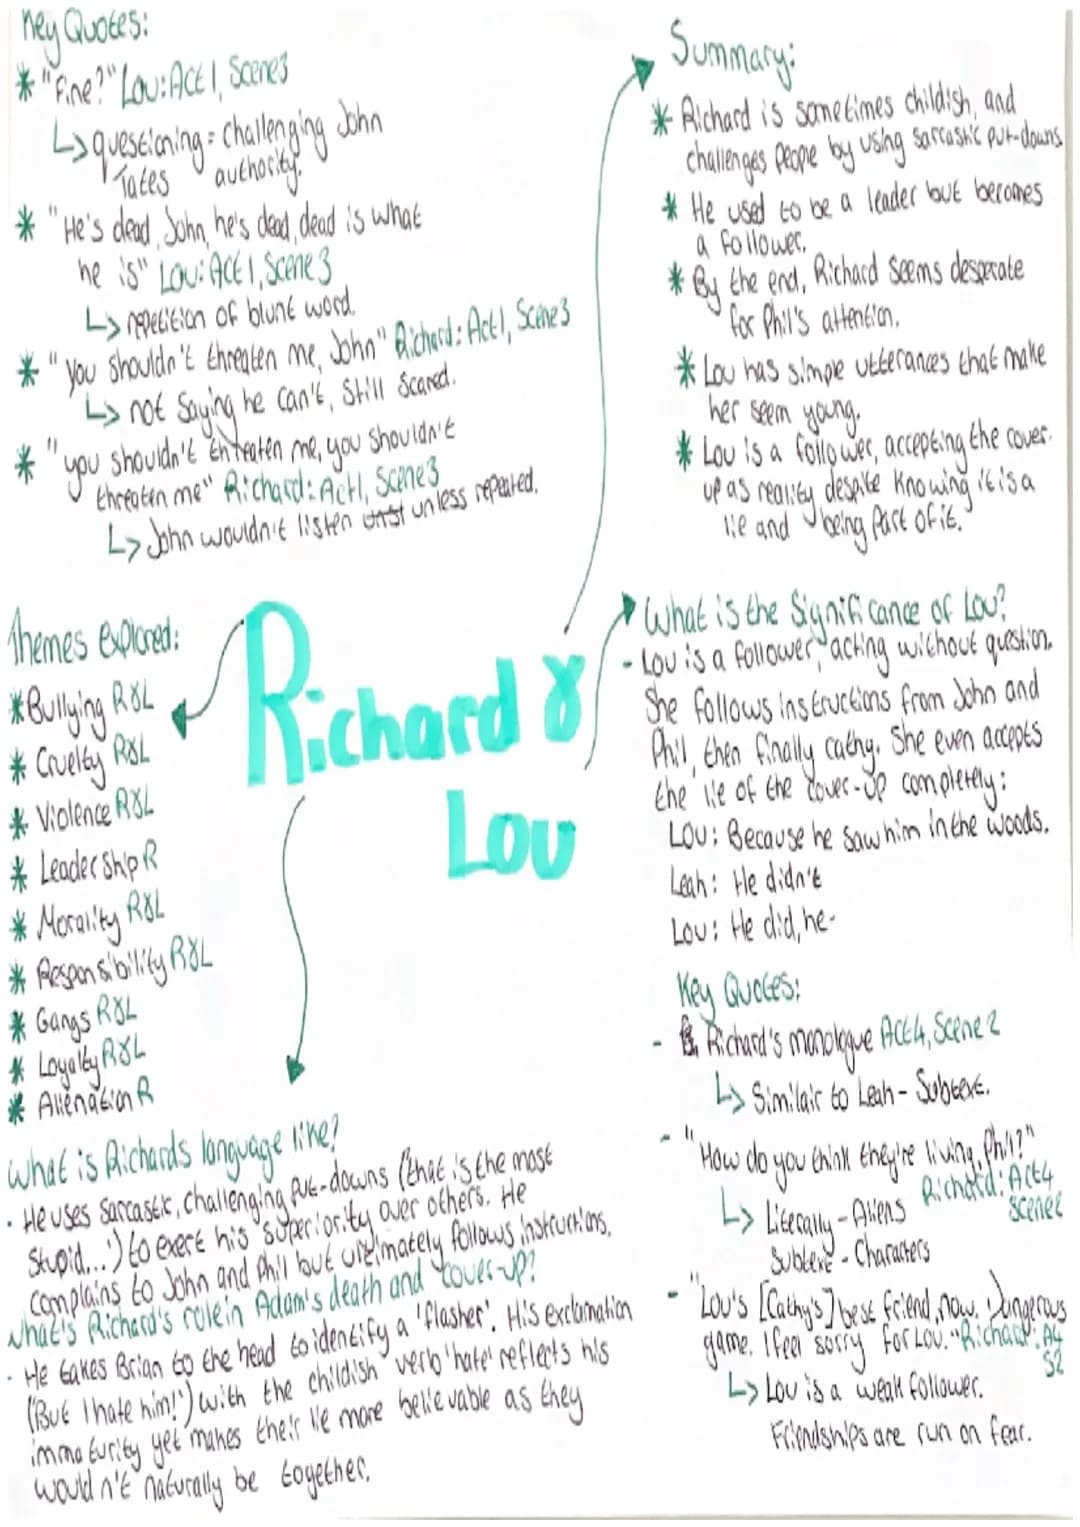 Key Quotes:
* "Fine?" Lou: Act 1, Scene 3
↳ questioning = challenging John
Tates authority.
* "He's dead, John, he's dead, dead is what
he is" Lou: Act 1, Scene 3
↳ repetition of blunt word.
* "you shouldn't threaten me, John" Richard: Act 1, Scene 3
↳ not saying he can't, still scared.
* "you shouldn't threaten me, you shouldn't
threaten me" Richard: Act 1, Scene 3
↳ John wouldn't listen unless repeated.
Summary:
* Richard is sometimes childish, and
challenges people by using sarcastic put-downs
* He used to be a leader but becomes
a follower.
* By the end, Richard seems desperate
for Phil's attention.
* Lou has simple utterances that make
her seem young.
* Lou is a follower, accepting the cover-
up as reality despite knowing it is a
lie and being part of it.
Themes explored:
* Bullying R&L
* Cruelty R&L
* Violence R&L
* Leadership R
* Morality R&L
* Responsibility R&L
* Gangs R&L
* Loyalty R&L
* Alienation R
Richard &
Lou
What is the Significance of Lou?
- Lou is a follower, acting without question.
She follows instructions from John and
Phil, then finally Cathy. She even accepts
the lie of the cover-up completely:
Lou: Because he saw him in the woods.
Leah: He didn't
Lou: He did, he-
Key Quotes:
- Richard's monologue Act 4, Scene 2
↳ Similair to Leah - Subtext.
- "How do you think they're living, Phil?"
Richard: Act 4
Scene 2
↳ Literally - Aliens
Subtext - Characters
- "Lou's [Cathy's] best friend, now. Dungerous
game. I feel sorry for Lou." Richard: A4
S2
↳ Lou is a weak follower.
Friendships are run on fear.
What is Richards language like?
· He uses sarcastic, challenging put-downs (that is the most
stupid...') to exert his superiority over others. He
complains to John and Phil but ultimately follows instructions.
What's Richard's role in Adam's death and cover-up?
· He takes Brian to the head to identify a 'flasher'. His exclamation
('But I hate him!') with the childish verb 'hate' reflects his
immaturity yet makes their lie more believable as they
wouldn't naturally be together.